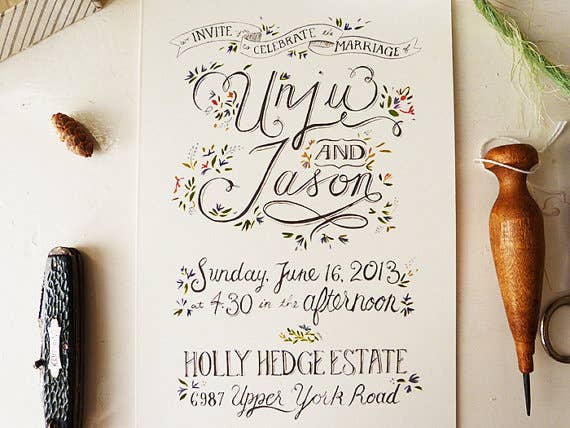 INVITE to CELEBRATE the MARRIAGE of
Unju
AND
Jason
Sunday, June 16, 2013
at 4:30 in the afternoon
HOLLY HEDGE ESTATE
6987 Upper York Road